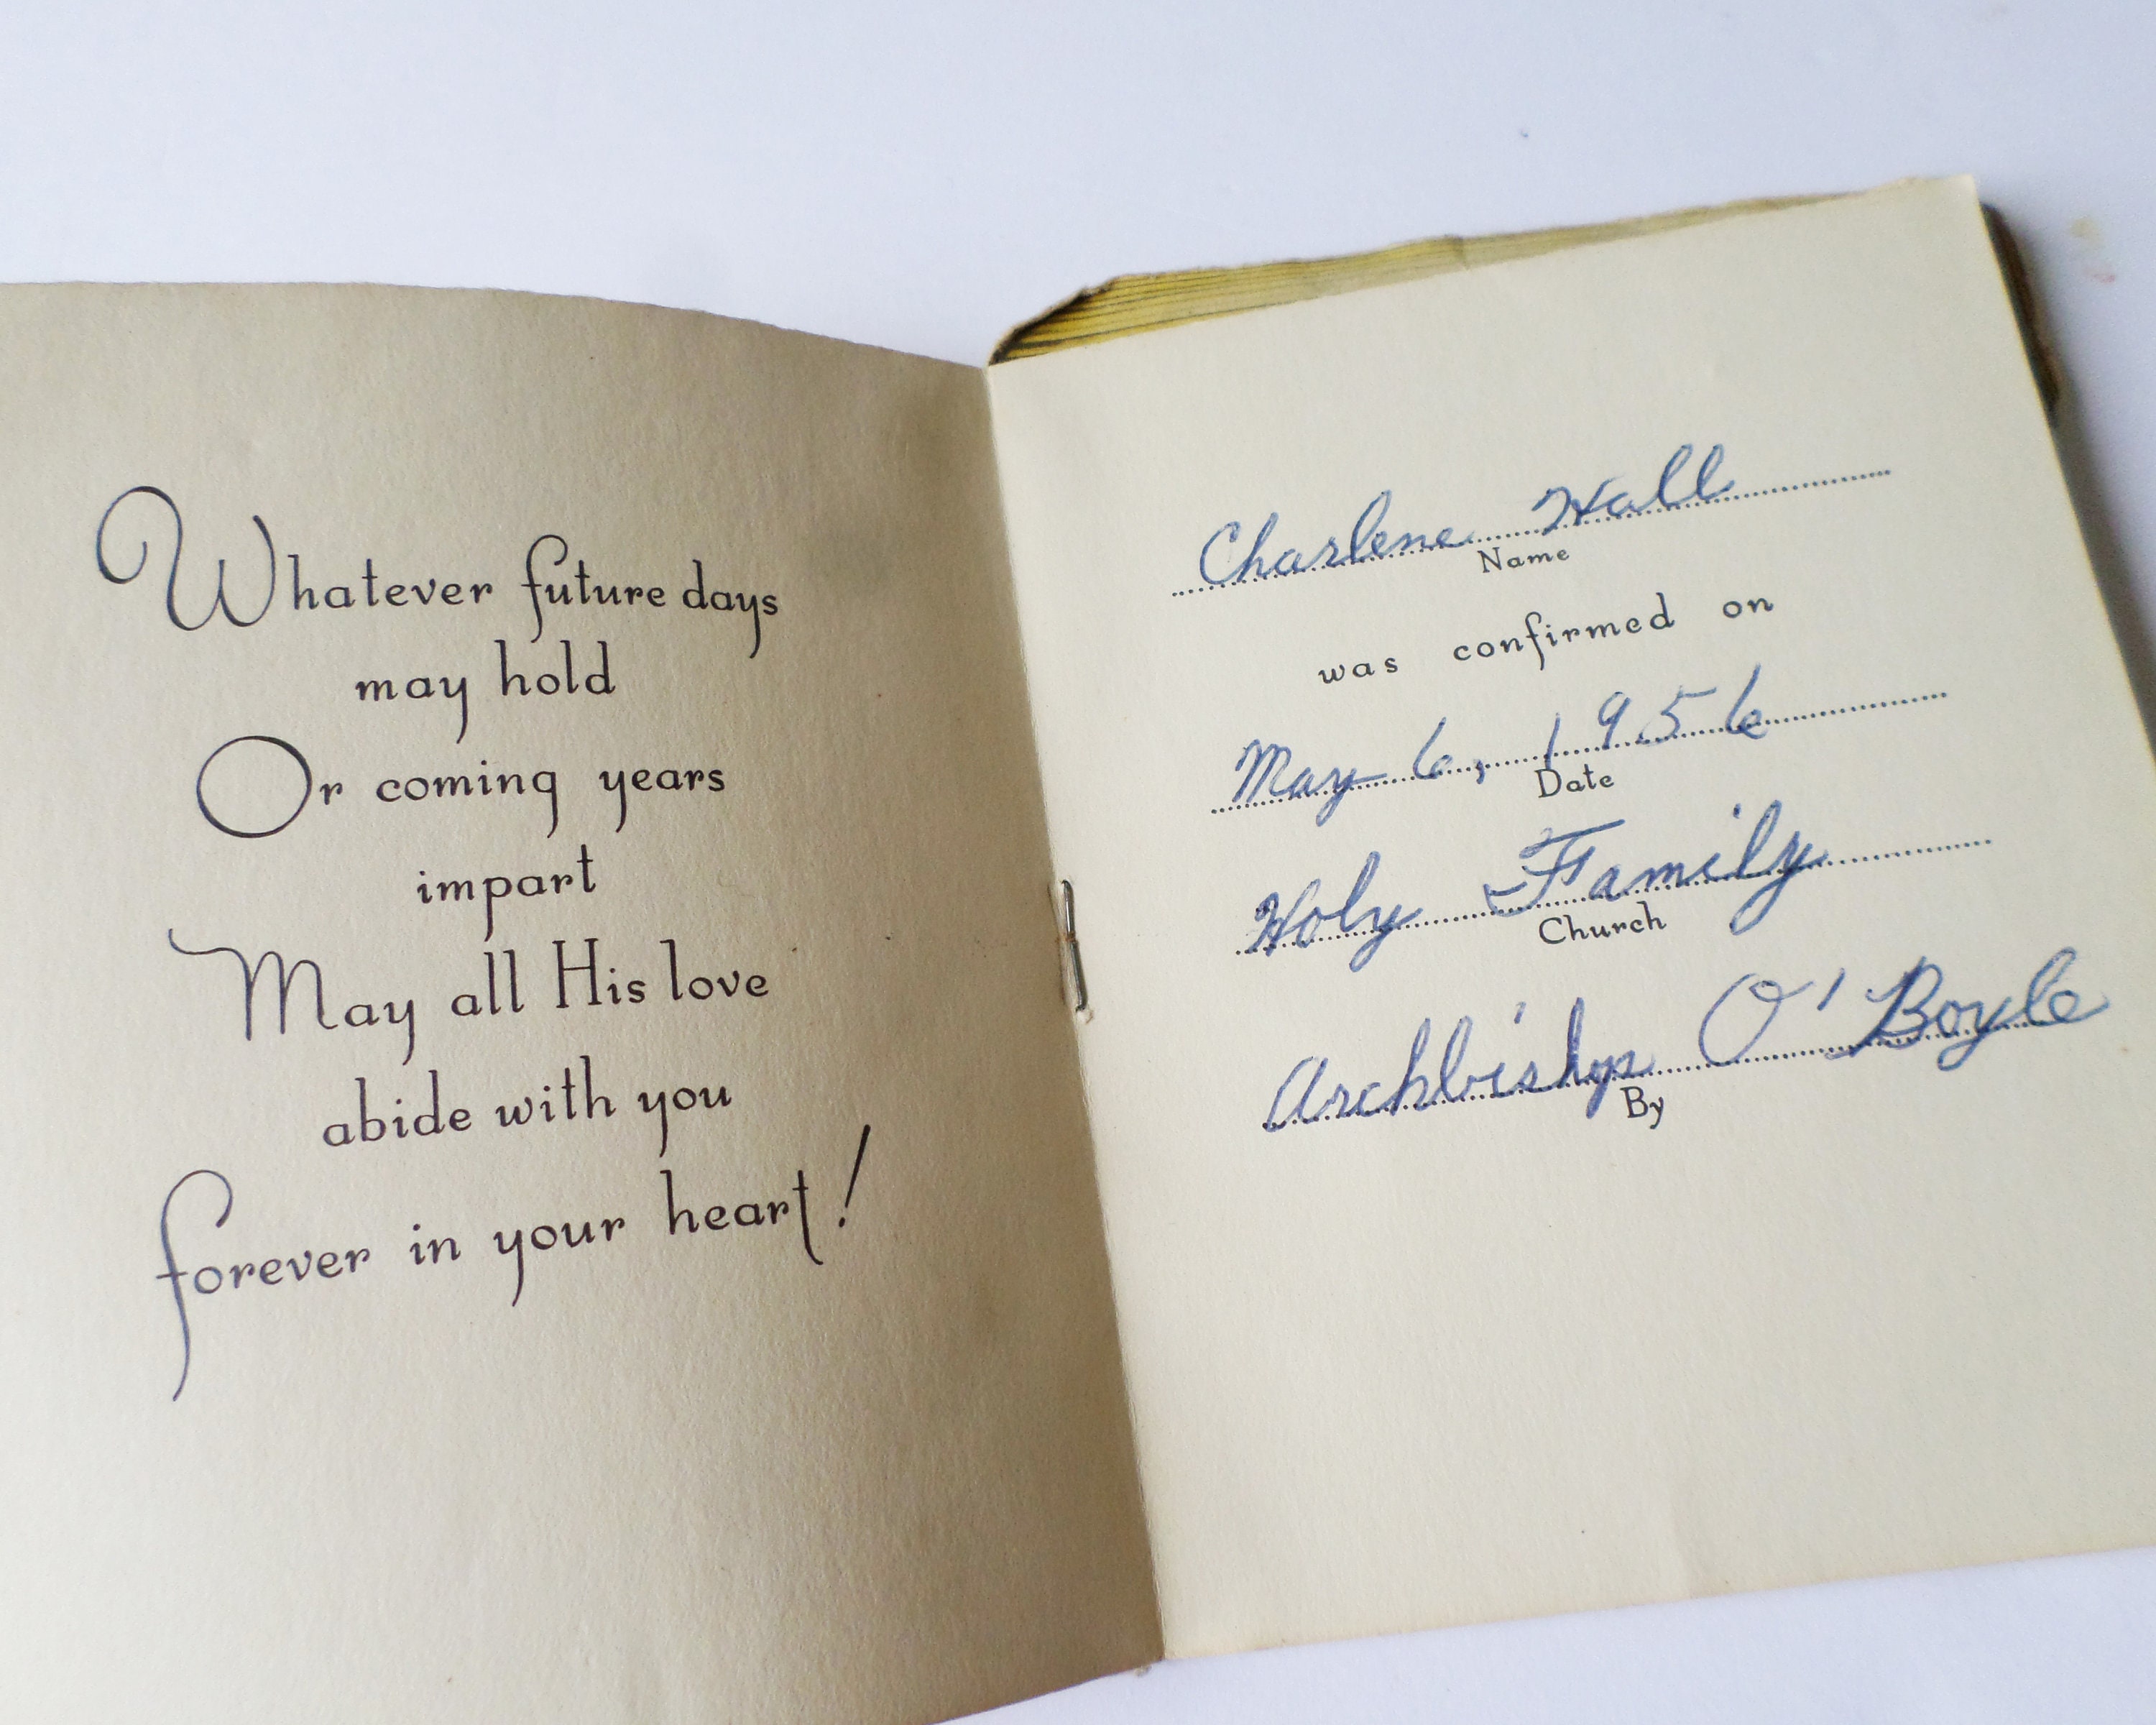 Whatever future days
may hold
Or coming years
impart
May all His love
abide with you
forever in your heart!
Charlene Hall
Name
was confirmed on
May 6, 1956
Date
Holy Family
Church
Archbishop O'Boyle
By